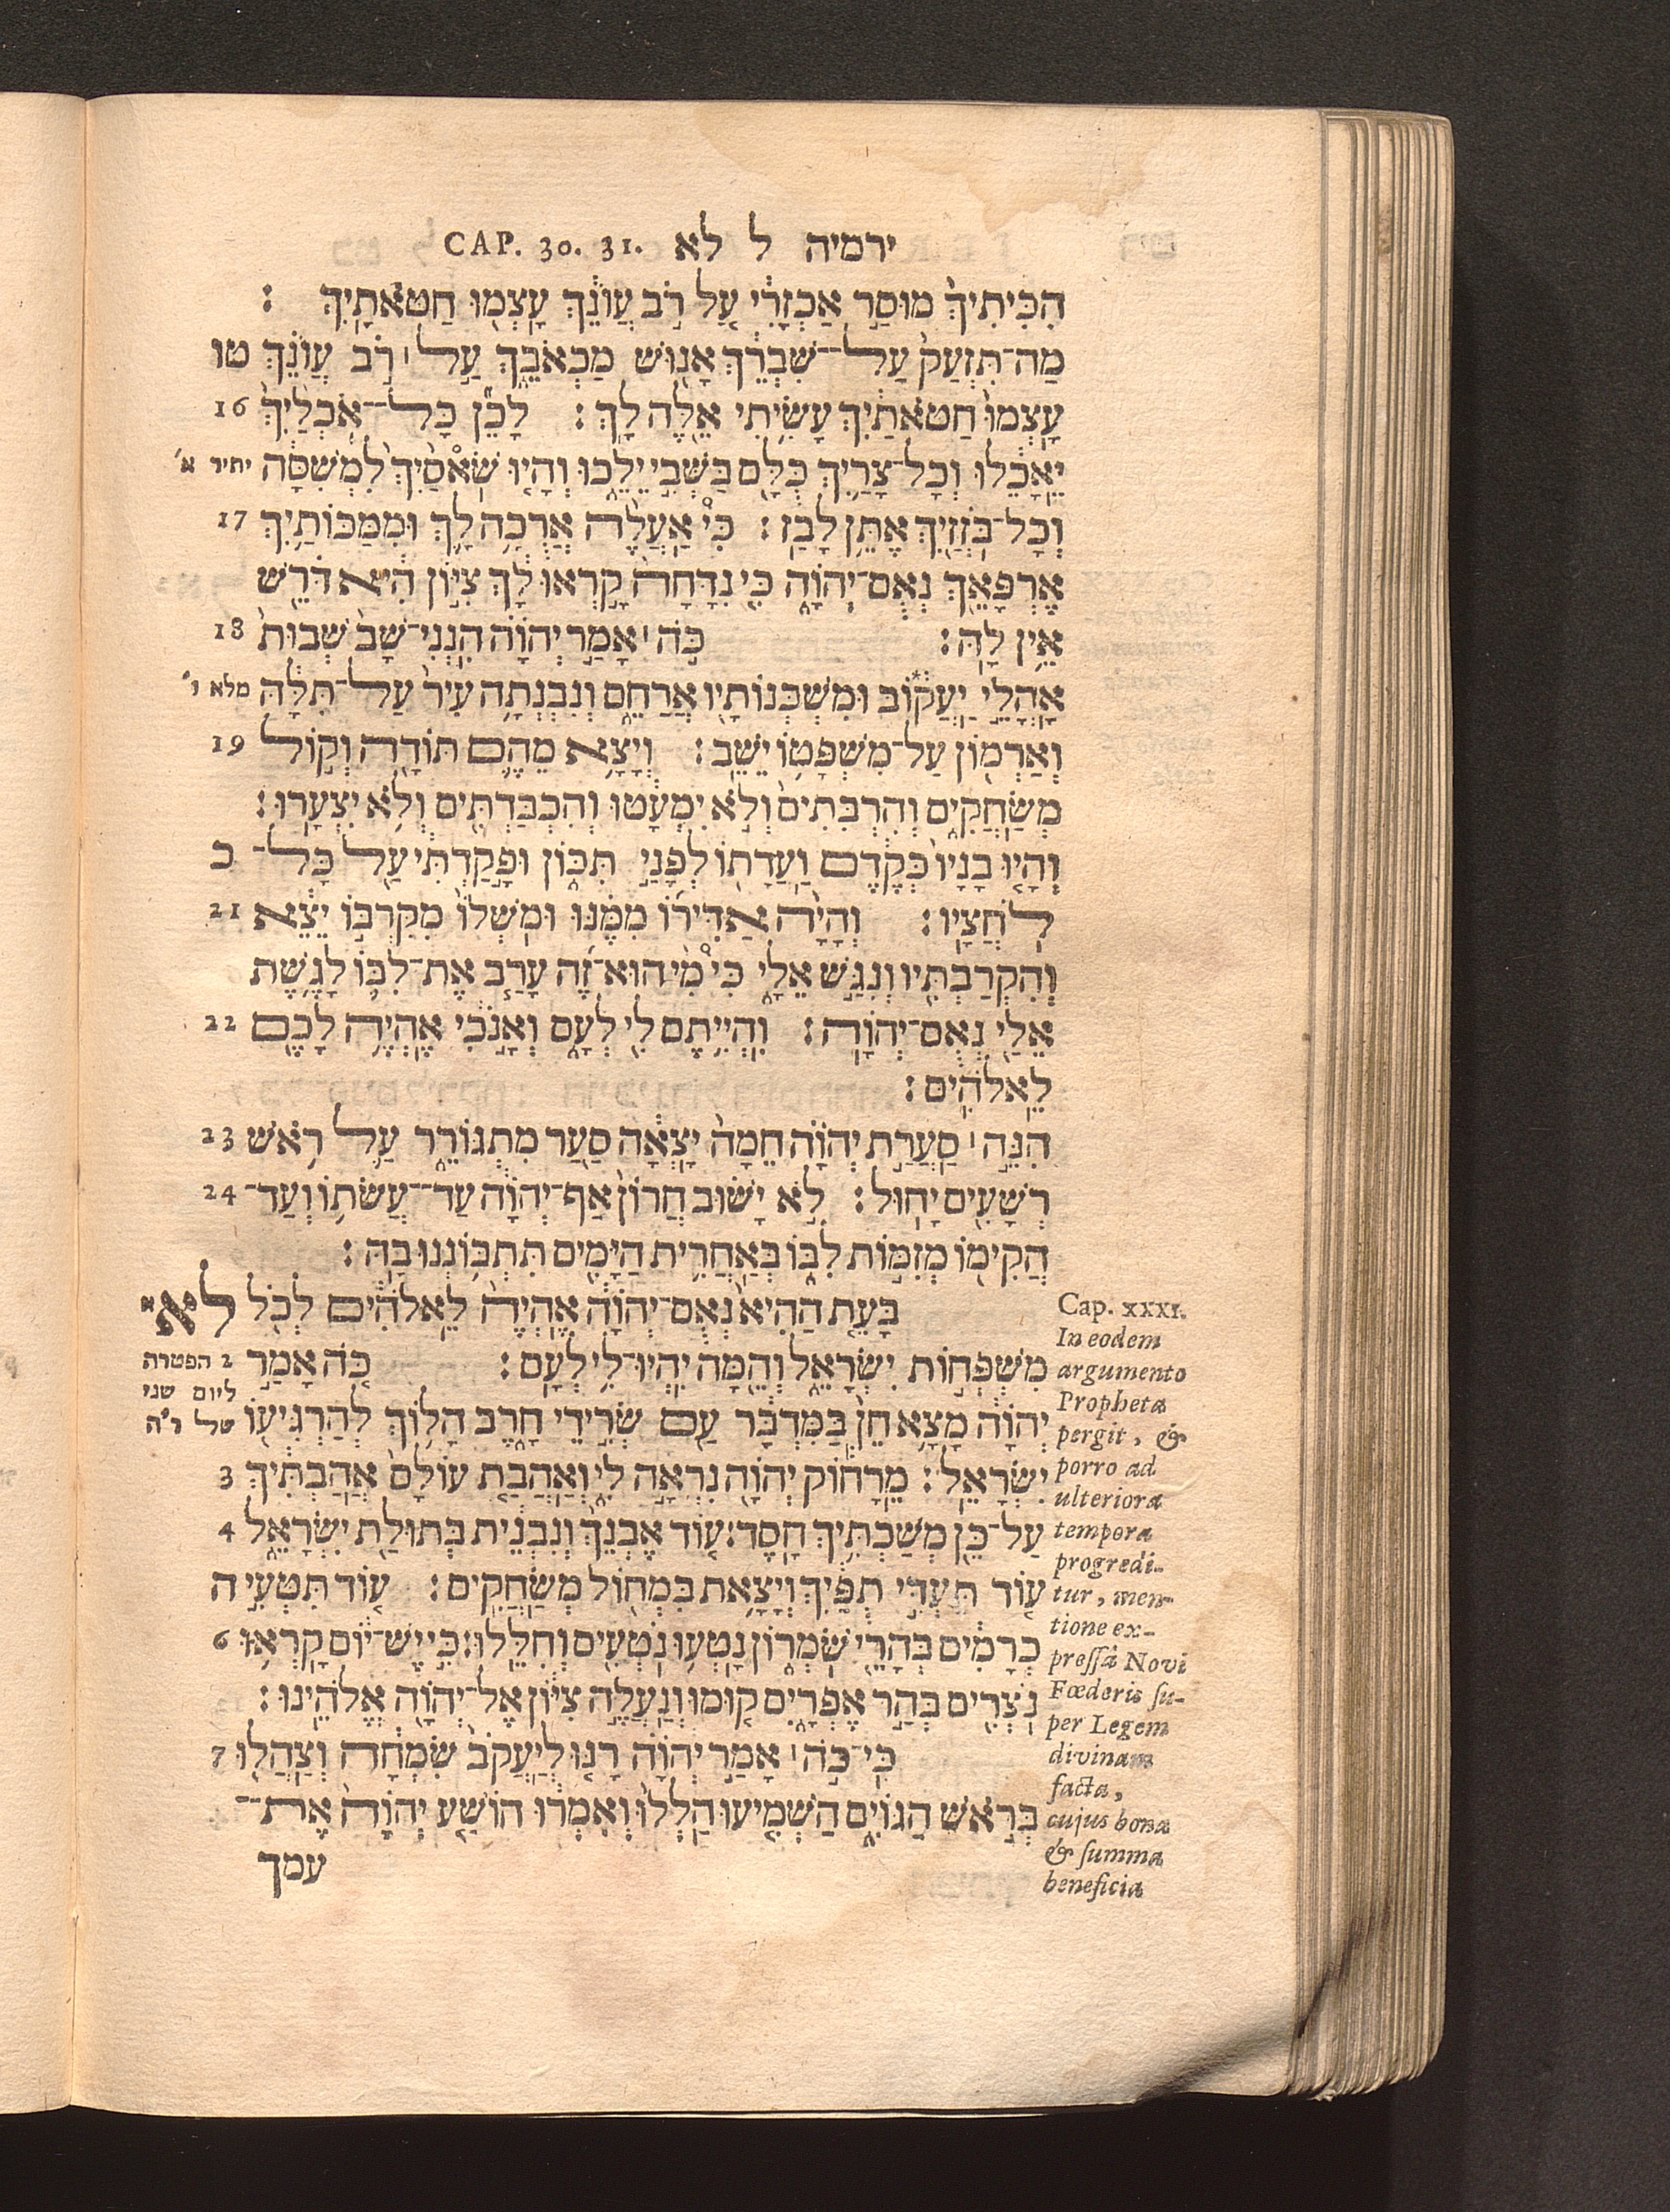 CAP. 30. 31. ירמיה ל לא
הִכִּיתִ֙יךְ֙ מוּסַ֣ר אַכְזָרִ֔י עַ֚ל רֹ֣ב עֲוֺנֵ֔ךְ עָצְמ֖וּ חַטֹּאתָֽיִךְ׃
מַה־תִּזְעַק֙ עַל־שִׁבְרֵ֔ךְ אָנ֖וּשׁ מַכְאֹבֵ֑ךְ עַ֣ל׀ רֹ֣ב עֲוֺנֵ֗ךְ טו
עָֽצְמוּ֙ חַטֹּאתַ֔יִךְ עָשִׂ֥יתִי אֵ֖לֶּה לָֽךְ׃ לָכֵ֞ן כָּל־אֹכְלַ֙יִךְ֙ 16
יֵאָכֵ֔לוּ וְכָל־צָרַ֥יִךְ כֻּלָּ֖ם בַּשְּׁבִ֣י יֵלֵ֑כוּ וְהָי֤וּ שֹׁאסַ֙יִךְ֙ לִמְשִׁסָּ֔ה יתיר א׳
וְכָל־בֹּזְזַ֖יִךְ אֶתֵּ֥ן לָבַֽז׃ כִּי֩ אַעֲלֶ֨ה אֲרֻכָ֥ה לָ֛ךְ וּמִמַּכּוֹתַ֥יִךְ 17
אֶרְפָּאֵ֖ךְ נְאֻם־יְהוָֹ֑ה כִּ֤י נִדָּחָה֙ קָ֣רְאוּ לָ֔ךְ צִיּ֣וֹן הִ֔יא דֹּרֵ֖שׁ
אֵ֥ין לָֽהּ׃ כֹּ֣ה׀ אָמַ֣ר יְהוָֹ֗ה הִנְנִי־שָׁב֙ שְׁבוּת֙ 18
אָהֳלֵ֣י יַֽעֲק֔וֹב וּמִשְׁכְּנוֹתָ֖יו אֲרַחֵ֑ם וְנִבְנְתָ֥ה עִיר֙ עַל־תִּלָּ֔הּ מלא ו׳
וְאַרְמ֖וֹן עַל־מִשְׁפָּט֥וֹ יֵשֵֽׁב׃ וְיָצָ֥א מֵהֶ֛ם תּוֹדָ֖ה וְק֣וֹל 19
מְשַׂחֲקִ֑ים וְהִרְבִּתִים֙ וְלֹ֣א יִמְעָ֔טוּ וְהִכְבַּדְתִּ֖ים וְלֹ֥א יִצְעָֽרוּ׃
וְהָי֤וּ בָנָיו֙ כְּקֶ֔דֶם וַעֲדָת֖וֹ לְפָנַ֣י תִּכּ֑וֹן וּפָ֣קַדְתִּ֔י עַ֖ל כָּל־ כ
לֹחֲצָֽיו׃ וְהָיָ֨ה אַדִּיר֜וֹ מִמֶּ֗נּוּ וּמֹֽשְׁלוֹ֙ מִקִּרְבּ֣וֹ יֵצֵ֔א 21
וְהִקְרַבְתִּ֖יו וְנִגַּ֣שׁ אֵלָ֑י כִּי֩ מִ֨י הוּא־זֶ֜ה עָרַ֧ב אֶת־לִבּ֛וֹ לָגֶ֥שֶׁת
אֵלַ֖י נְאֻם־יְהוָֹֽה׃ וִהְיִ֥יתֶם לִ֖י לְעָ֑ם וְאָ֣נֹכִ֔י אֶהְיֶ֥ה לָכֶ֖ם 22
לֵאלֹהִֽים׃
הִנֵּ֣ה׀ סַעֲרַ֣ת יְהוָֹ֗ה חֵמָה֙ יָֽצְאָ֔ה סַ֖עַר מִתְגּוֹרֵ֑ר עַ֛ל רֹ֥אשׁ 23
רְשָׁעִ֖ים יָחֽוּל׃ לֹ֣א יָשׁ֗וּב חֲרוֹן֙ אַף־יְהוָֹ֔ה עַד־עֲשֹׂת֥וֹ וְעַד־ 24
הֲקִימ֖וֹ מְזִמּ֣וֹת לִבּ֑וֹ בְּאַחֲרִ֥ית הַיָּמִ֖ים תִּתְבּ֥וֹנְנוּ בָֽהּ׃
בָּעֵ֤ת הַהִיא֙ נְאֻם־יְהוָֹ֔ה אֶֽהְיֶה֙ לֵֽאלֹהִ֔ים לְכֹ֖ל לא א
מִשְׁפְּח֣וֹת יִשְׂרָאֵ֑ל וְהֵ֖מָּה יִֽהְיוּ־לִ֥י לְעָֽם׃ כֹּ֚ה אָמַ֣ר 2 הפטרה
ליום שני
יְהוָֹ֔ה מָצָ֥א חֵן֙ בַּמִּדְבָּ֔ר עַ֖ם שְׂרִ֣ידֵי חָ֑רֶב הָל֥וֹךְ לְהַרְגִּיע֖וֹ של ר״ה
יִשְׂרָאֵֽל׃ מֵרָח֕וֹק יְהוָֹ֖ה נִרְאָ֣ה לִ֑י וְאַהֲבַ֤ת עוֹלָם֙ אֲהַבְתִּ֔יךְ 3
עַל־כֵּ֖ן מְשַׁכְתִּ֥יךְ חָֽסֶד׃ ע֤וֹד אֶבְנֵךְ֙ וְֽנִבְנֵ֔ית בְּתוּלַ֖ת יִשְׂרָאֵ֑ל 4
ע֚וֹד תַּעְדִּ֣י תֻפַּ֔יִךְ וְיָצָ֖את בִּמְח֥וֹל מְשַׂחֲקִֽים׃ ע֚וֹד תִּטְּעִ֣י ה
כְרָמִ֔ים בְּהָרֵ֖י שֹׁמְר֑וֹן נָטְע֥וּ נֹטְעִ֖ים וְחִלֵּֽלוּ׃ כִּ֣י יֶשׁ־י֔וֹם קָרְא֥וּ 6
נֹצְרִ֖ים בְּהַ֣ר אֶפְרָ֑יִם ק֚וּמוּ וְנַעֲלֶ֣ה צִיּ֔וֹן אֶל־יְהוָֹ֖ה אֱלֹהֵֽינוּ׃
כִּי־כֹ֣ה׀ אָמַ֣ר יְהוָֹ֗ה רָנּ֤וּ לְיַֽעֲקֹב֙ שִׂמְחָ֔ה וְצַהֲל֖וּ 7
בְּרֹ֣אשׁ הַגּוֹיִ֑ם הַשְׁמִ֤יעוּ הַֽלְלוּ֙ וְאִמְר֔וּ הוֹשַׁ֤ע יְהוָֹה֙ אֶֽת־
עמך
Cap. XXXI.
In eodem
argumento
Propheta
pergit, &
porro ad
ulteriora
tempora
progredi-
tur, men-
tione ex-
pressâ Novi
Fœderis su-
per Legem
divinam
facta,
cujus bona
& summa
beneficia